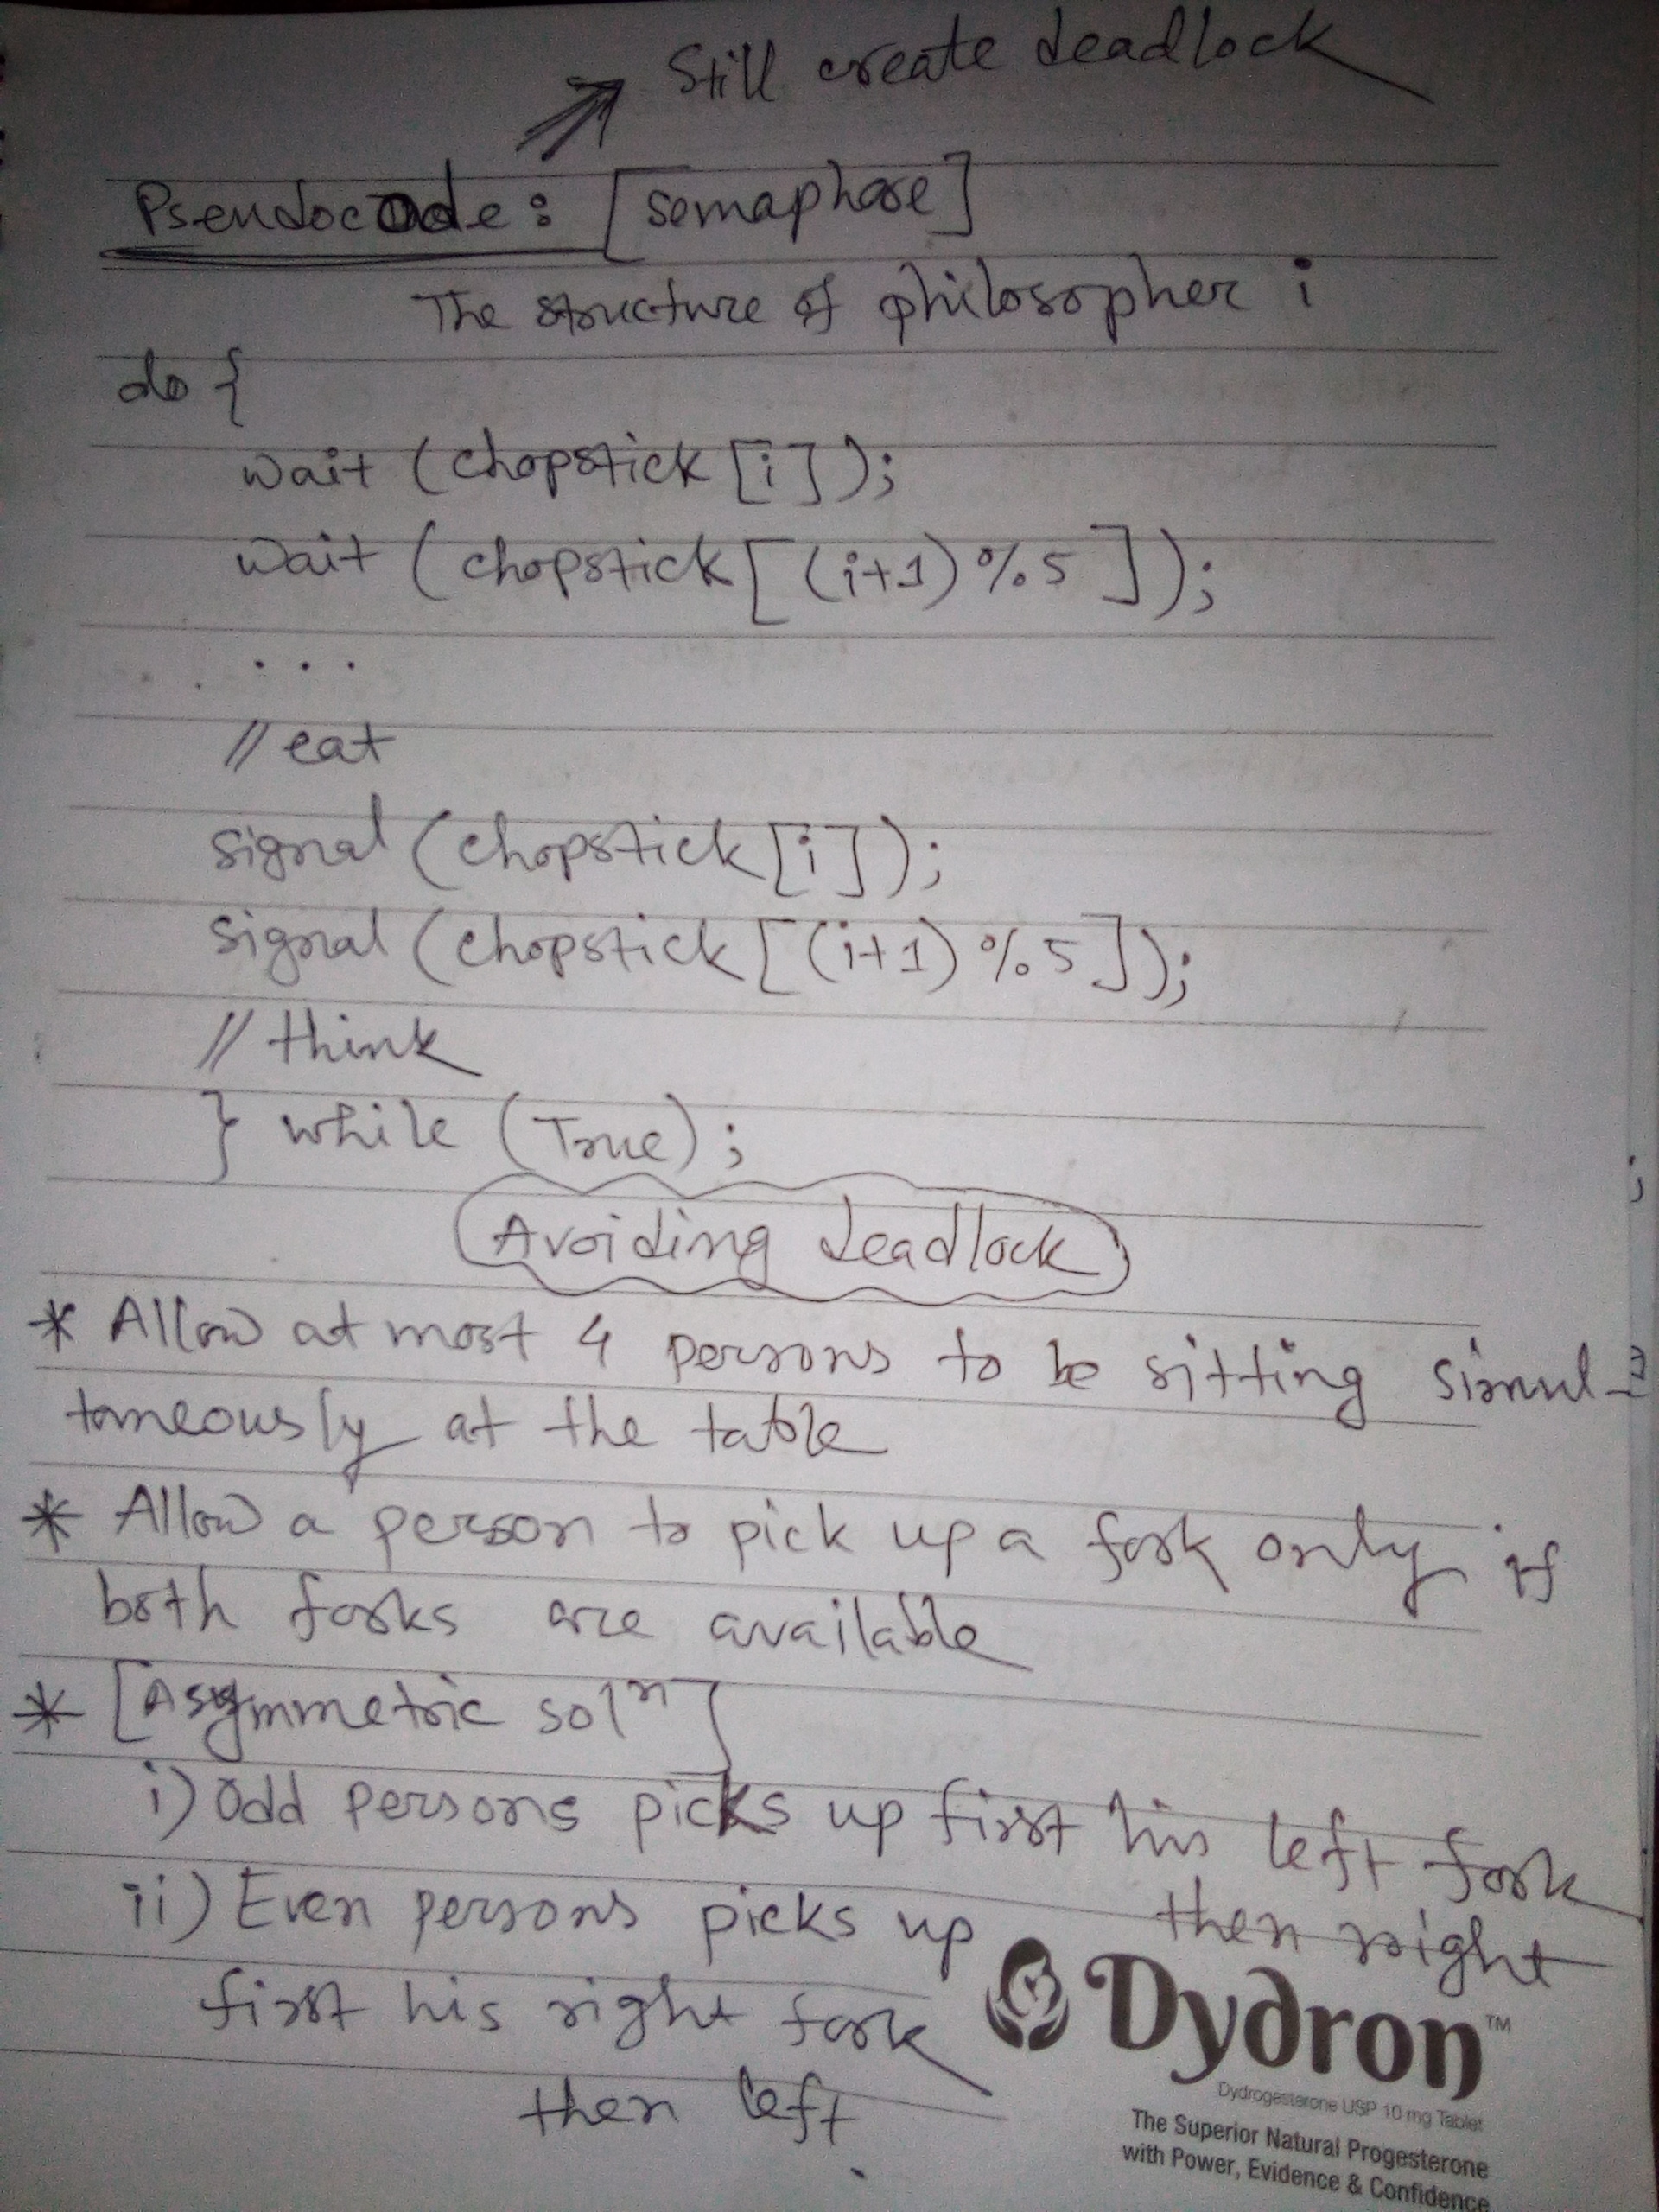 Still create deadlock
Pseudocode: [semaphore]
The structure of philosopher i
do {
wait (chopstick [i]);
wait (chopstick [(i+1) % 5]);
...
// eat
signal (chopstick [i]);
signal (chopstick [(i+1) % 5]);
// think
} while (True);
Avoiding deadlock
* Allow at most 4 persons to be sitting simul-
taneously at the table
* Allow a person to pick up a fork only if
both forks are available
* [Asymmetric solⁿ]
i) Odd persons picks up first his left fork
then right
ii) Even persons picks up
first his right fork
then left
Dydron™
Dydrogesterone USP 10 mg Tablet
The Superior Natural Progesterone
with Power, Evidence & Confidence